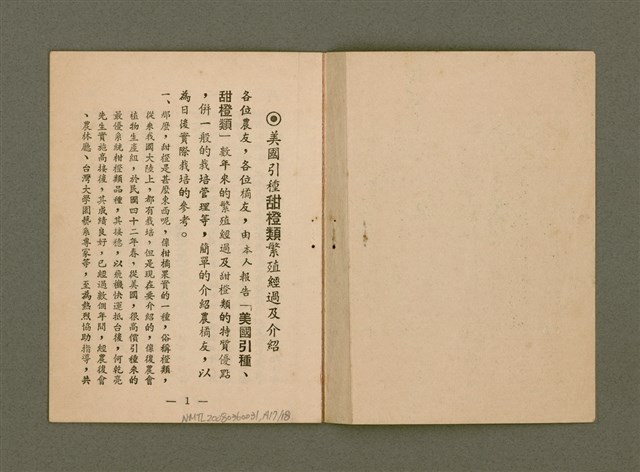 ◉美國引種甜橙類繁殖經過及介紹
各位農友，各位橘友，由本人報告「美國引種、
甜橙類」數年來的繁殖經過及甜橙類的特質優點
，併一般的栽培管理等，簡單的介紹農橘友，以
為日後實際栽培的參考。
一、那麼，甜橙是甚麼東西呢，像柑橘果實的一種，俗稱橙類，
從來我國大陸上，都有栽培，但是現在要介紹的，像復農會
植物生產組，於民國四十二年春，從美國，很高價引種來的
最優系統柑橙類品種，其接穗，以飛機快運抵台後，何乾亮
先生實施高接後，其成績良好，已經過數個年間，經農復會
、農林廳、台灣大學園藝系專家等，至為熱烈協助指導，共
— 1 —
NMTL20080360031, A17/18